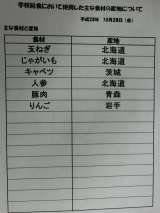 学校給食において使用した主な食材の産地について
平成28年 10月28日（金）
主な食材と産地
食材 産地
玉ねぎ 北海道
じゃがいも 北海道
キャベツ 茨城
人参 北海道
豚肉 青森
りんご 岩手